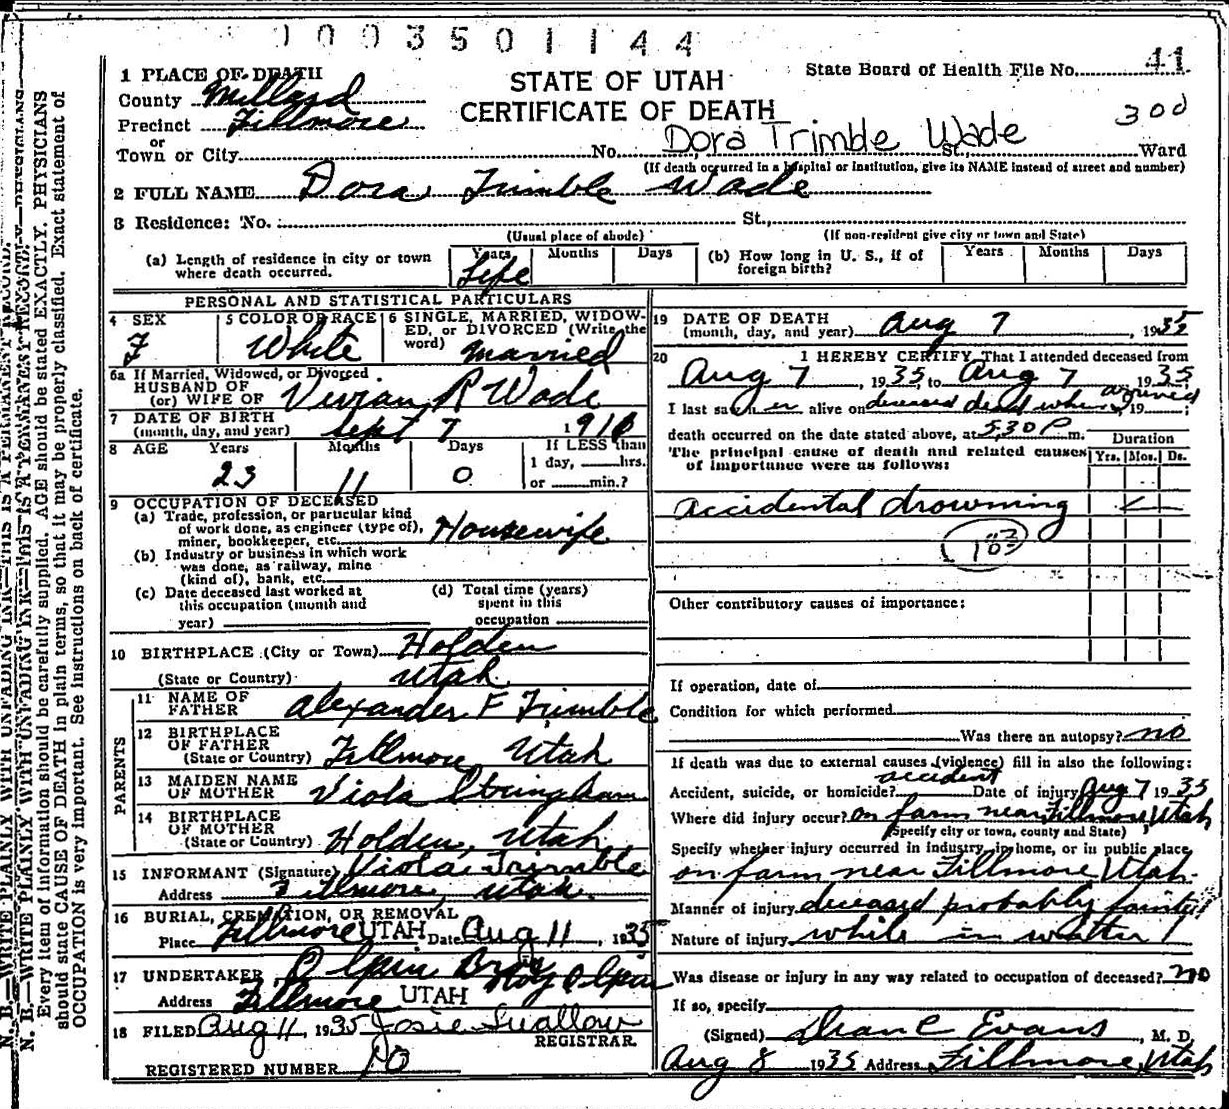 1003501144
1 PLACE OF DEATH
STATE OF UTAH
State Board of Health File No. 41
County Millard
CERTIFICATE OF DEATH
300
Precinct Fillmore
or
Dora Trimble Wade
Town or City No. St., Ward
(If death occurred in a hospital or institution, give its NAME instead of street and number)
2 FULL NAME Dora Trimble Wade
3 Residence: No. St.,
(Usual place of abode) (If non-resident give city or town and State)
(a) Length of residence in city or town where death occurred. Years Life Months Days
(b) How long in U. S., if of foreign birth? Years Months Days
PERSONAL AND STATISTICAL PARTICULARS
4 SEX F
5 COLOR OR RACE White
6 SINGLE, MARRIED, WIDOWED, or DIVORCED (Write the word) Married
6a If Married, Widowed, or Divorced
HUSBAND OF
(or) WIFE OF Vivian R Wade
7 DATE OF BIRTH
(month, day, and year) Sept 7
8 AGE Years 23 Months 11 Days 0
If LESS than
1 day, hrs.
or min.?
9 OCCUPATION OF DECEASED
(a) Trade, profession, or particular kind
of work done, as engineer (type of),
miner, bookkeeper, etc. Housewife
(b) Industry or business in which work
was done, as railway, mine
(kind of), bank, etc.
(c) Date deceased last worked at
this occupation (month and
year)
(d) Total time (years)
spent in this
occupation
10 BIRTHPLACE (City or Town) Holden
(State or Country) Utah
PARENTS
11 NAME OF
FATHER Alexander F Trimble
12 BIRTHPLACE
OF FATHER
(State or Country) Fillmore Utah
13 MAIDEN NAME
OF MOTHER Viola Stringham
14 BIRTHPLACE
OF MOTHER
(State or Country) Holden, Utah
15 INFORMANT (Signature) Viola Trimble
Address Fillmore, Utah.
16 BURIAL, CREMATION, OR REMOVAL
Place Fillmore UTAH Date Aug 11, 1935
17 UNDERTAKER Olpin Bros Roy Olpin
Address Fillmore UTAH
18 FILED Aug 11, 1935 Josie Swallow
REGISTRAR
REGISTERED NUMBER 10
19 DATE OF DEATH
(month, day, and year) Aug 7, 1935
20 I HEREBY CERTIFY, That I attended deceased from
Aug 7, 1935, to Aug 7 1935;
I last saw her alive on deceased dead when arrived, 19 ;
death occurred on the date stated above, at 5:30 P m.
The principal cause of death and related causes
of importance were as follows:
Duration
Yrs. Mos. Ds.
Accidental drowning
183
Other contributory causes of importance:
If operation, date of
Condition for which performed
Was there an autopsy? no
If death was due to external causes (violence) fill in also the following:
Accident, suicide, or homicide? accident Date of injury Aug 7 1935
Where did injury occur? on farm near Fillmore, Utah
(Specify city or town, county and State)
Specify whether injury occurred in industry, in home, or in public place.
on farm near Fillmore, Utah.
Manner of injury deceased probably fainted
Nature of injury while in watter
Was disease or injury in any way related to occupation of deceased? no
If so, specify
(Signed) Dean C Evans, M. D.
Aug 8 1935 Address Fillmore, Utah
N. B.—WRITE PLAINLY WITH UNFADING INK—THIS IS A PERMANENT RECORD.
Every item of information should be carefully supplied. AGE should be stated EXACTLY. PHYSICIANS
should state CAUSE OF DEATH in plain terms, so that it may be properly classified. Exact statement of
OCCUPATION is very important. See instructions on back of certificate.